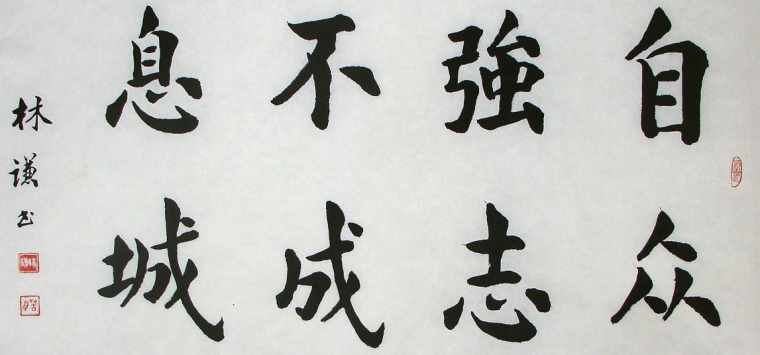 自众
強志
不成
息城
林謙书